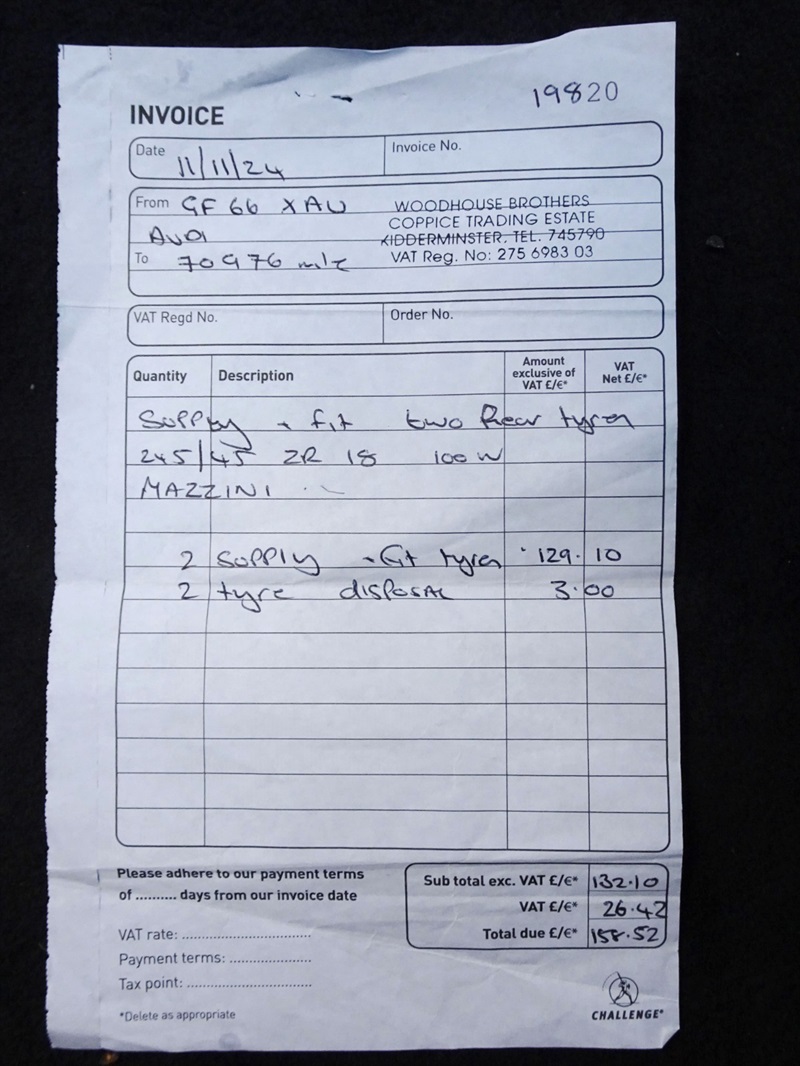 19820
INVOICE
Date 11/11/24
Invoice No.
From GF66 XAU
AUDI
To 70976 mls
WOODHOUSE BROTHERS
COPPICE TRADING ESTATE
KIDDERMINSTER. TEL. 745790
VAT Reg. No: 275 6983 03
VAT Regd No.
Order No.
Quantity Description Amount exclusive of VAT £/€* VAT Net £/€*
Supply + fit two Rear tyres
245/45 ZR 18 100W
MAZZINI
2 supply + fit tyres 129.10
2 tyre disposal 3.00
Please adhere to our payment terms
of .......... days from our invoice date
VAT rate: ................................
Payment terms: ....................
Tax point: ..............................
*Delete as appropriate
Sub total exc. VAT £/€* 132.10
VAT £/€* 26.42
Total due £/€* 158.52
CHALLENGE*